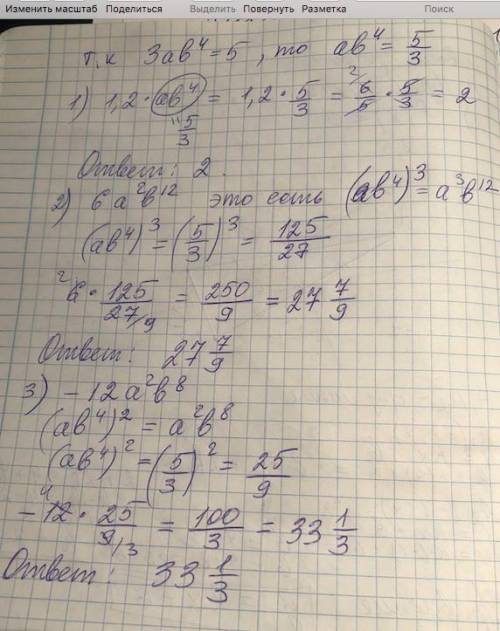 Изменить масштаб Поделиться Выделить Повернуть Разметка Поиск
т.к 3ab⁴=5, то ab⁴ = 5/3
1) 1,2·ab⁴ = 1,2·5/3 = 6/5 · 5/3 = 2
"5/3
2
Ответ: 2.
2) 6a²b¹² это есть (ab⁴)³ = a³b¹²
(ab⁴)³ = (5/3)³ = 125/27
²6 · 125/27/9 = 250/9 = 27 7/9
Ответ: 27 7/9
3) -12a²b⁸
(ab⁴)² = a²b⁸
(ab⁴)² = (5/3)² = 25/9
-⁴12 · 25/9/3 = 100/3 = 33 1/3
Ответ: 33 1/3